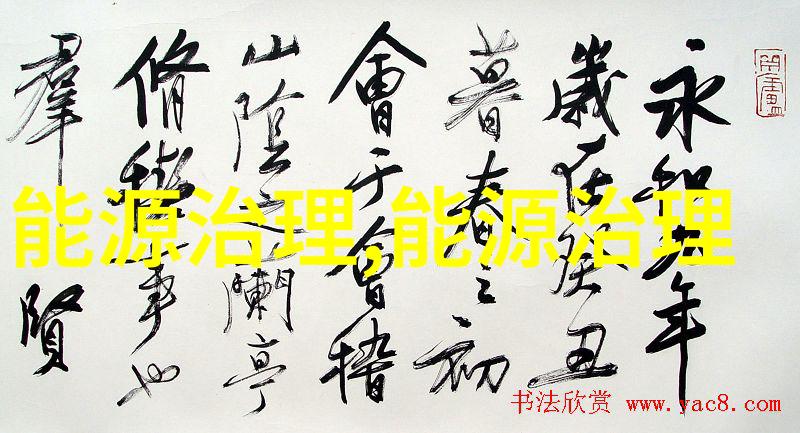 永和九年
歲在癸丑
暮春之初
會于會稽
山陰之蘭亭
脩稧事也
羣賢
能源治理,能源治理
书法欣赏 www.yac8.com